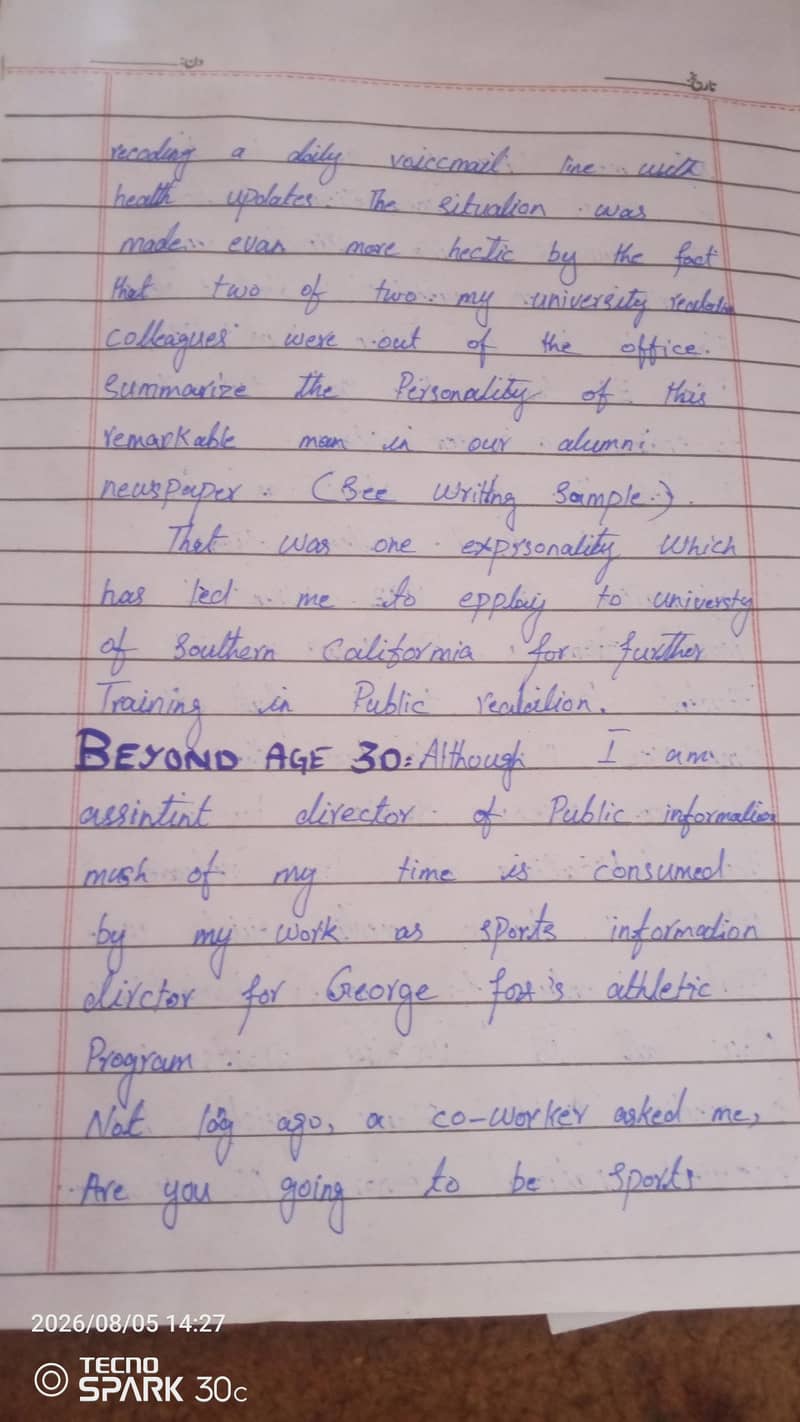 recoding a daily voiccmail line with
health updates. The situation was
made evan more hectic by the fact
that two of two my university
colleagues were out of the office.
Summarize the Personality of this
remarkable man in our alumni
newspaper. (See Writtng Sample.)
That was one exprsonality which
has led me to epplay to universty
of Southern California for further
Training in Public realation.
BEYOND AGE 30: Although I am
assintint director of Public information
mush of my time is consumed
by my work as sports information
dirctor for George fox's athletic
Program.
Not log ago, a co-worker asked me,
Are you going to be sports
2026/08/05 14:27
TECNO
SPARK 30C